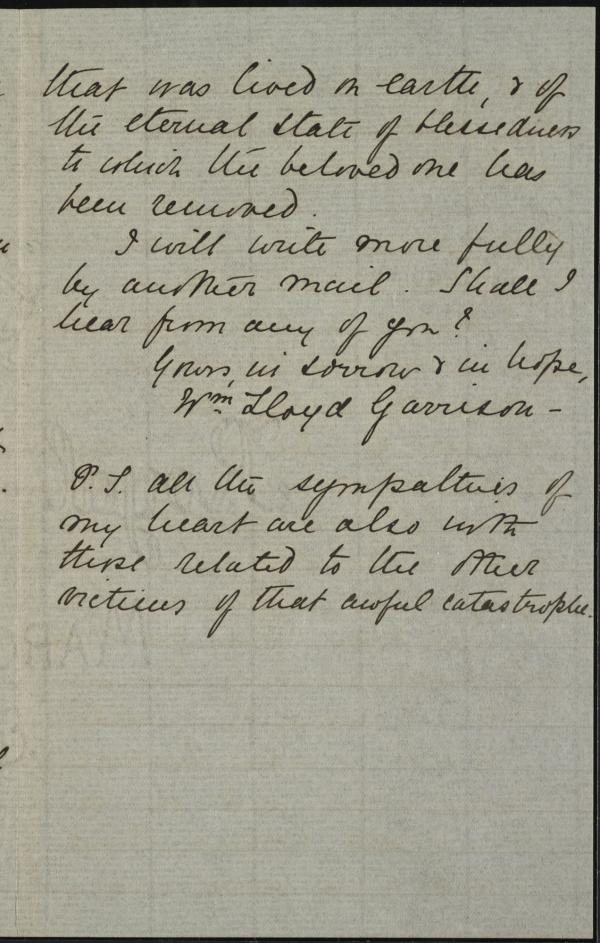 that was lived on earth, & of
the eternal state of blessedness
to which the beloved one has
been removed.
I will write more fully
by another mail. Shall I
hear from any of you?
Yours, in sorrow & in hope,
Wm. Lloyd Garrison -
P.S. All the sympathies of
my heart are also with
those related to the other
victims of that awful catastrophe.